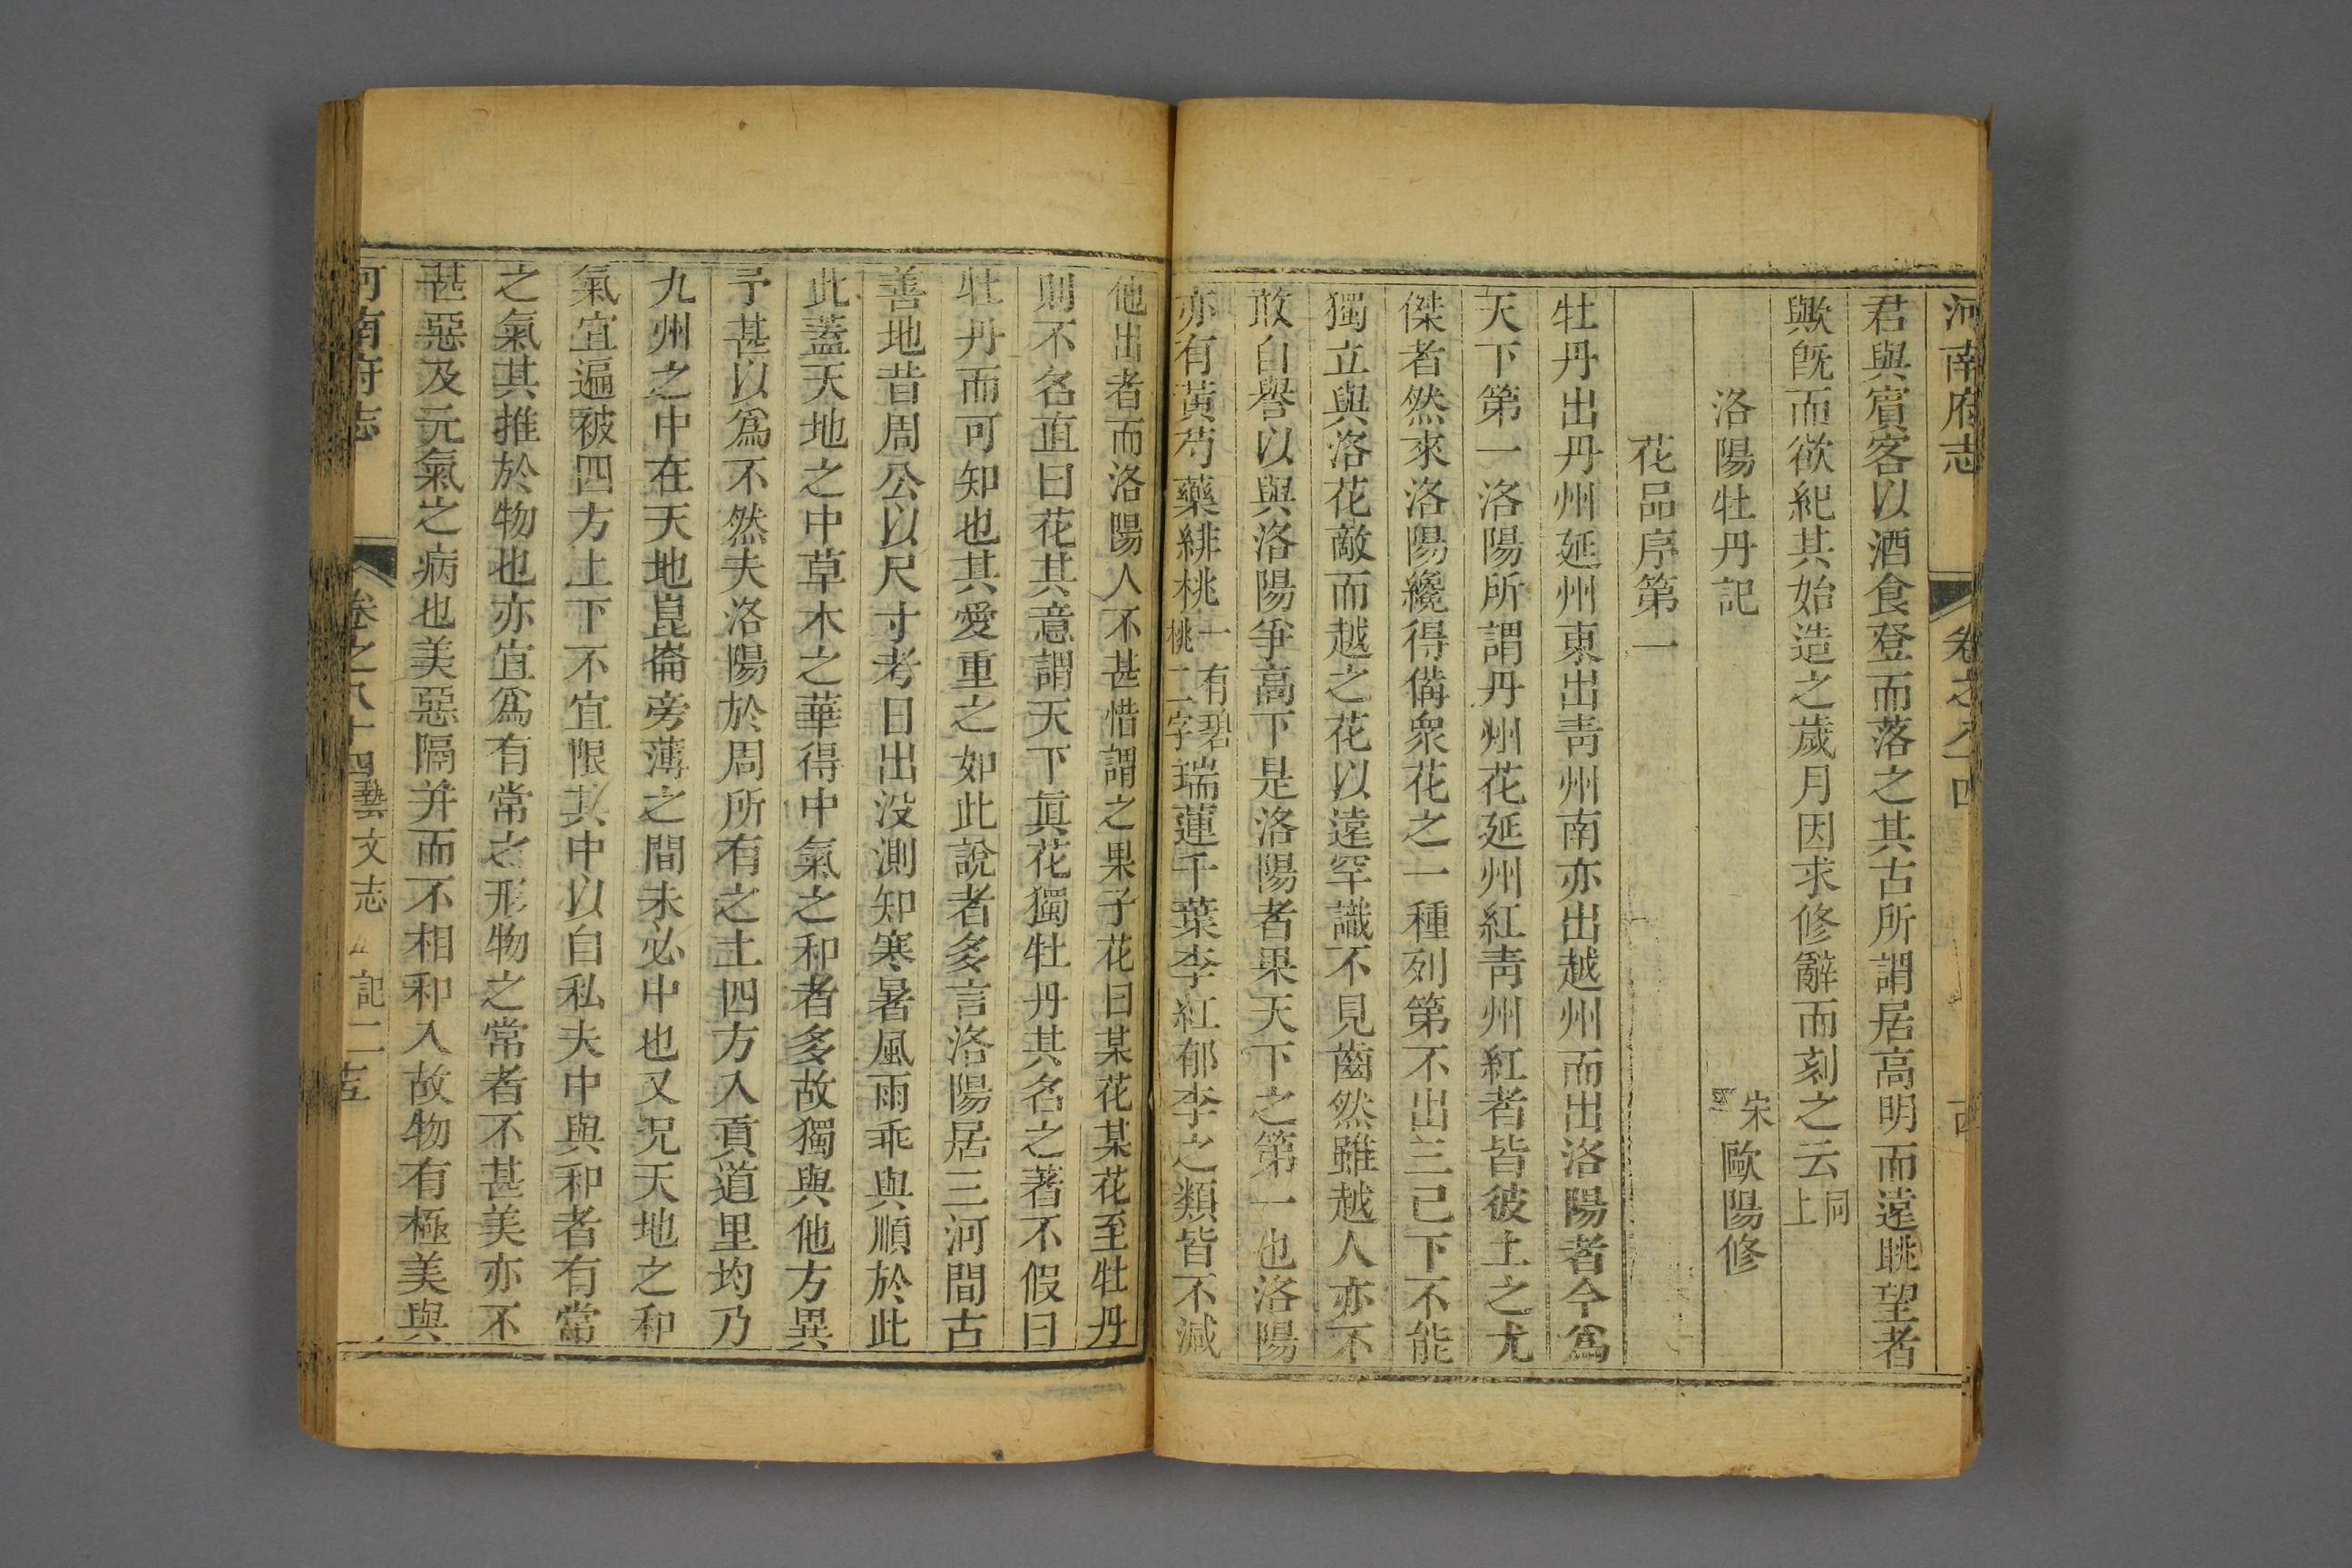 河南府志 卷之八十四
君與賓客以酒食登而落之其古所謂居高明而遠眺望者
歟旣而欲紀其始造之歲月因求修辭而刻之云同上
洛陽牡丹記 宋 歐陽修
花品序第一
牡丹出丹州延州東出靑州南亦出越州而出洛陽者今爲
天下第一洛陽所謂丹州花延州紅靑州紅者皆彼土之尤
傑者然來洛陽纔得備衆花之一種列第不出三已下不能
獨立與洛花敵而越之花以遠罕識不見齒然雖越人亦不
敢自譽以與洛陽爭高下是洛陽者果天下之第一也洛陽
亦有黃芍藥緋桃一有碧桃二字瑞蓮千葉李紅郁李之類皆不減
他出者而洛陽人不甚惜謂之果子花曰某花某花至牡丹
則不名直曰花其意謂天下眞花獨牡丹其名之著不假曰
牡丹而可知也其愛重之如此說者多言洛陽居三河間古
善地昔周公以尺寸考日出没測知寒暑風雨乖與順於此
此蓋天地之中草木之華得中氣之和者多故獨與他方異
予甚以爲不然夫洛陽於周所有之土四方入貢道里均乃
九州之中在天地崑崙旁薄之間未必中也又况天地之和
氣宜遍被四方上下不宜限其中以自私夫中與和者有常
之氣其推於物也亦宜爲有常之形物之常者不甚美亦不
甚惡及元氣之病也美惡隔并而不相和入故物有極美與
河南府志 卷之八十四藝文志 記二